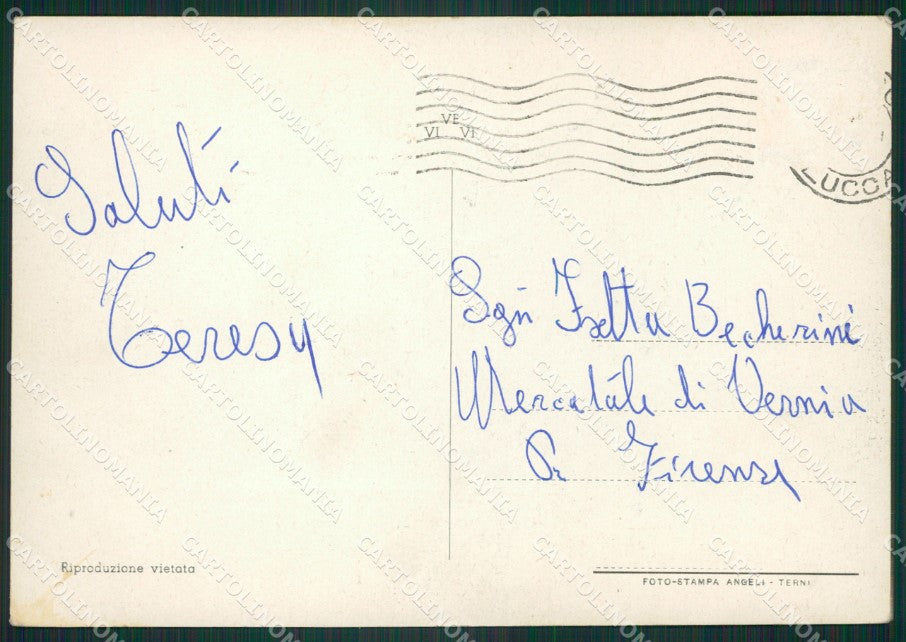 Saluti
Teresa
VE
VI VI
LUCCA
Sgn Isetta Becherini
Mercatale di Vernia
Pr Firenze
Riproduzione vietata
FOTO-STAMPA ANGELI - TERNI
CARTOLINOMANIA